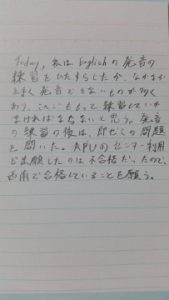 Today, 私は Englishの発音の
練習をひたすらしたが、なかなか
うまく発音できないものが多く
あり、ここをもっと練習していか
なければならないと思う。発音
の練習の後は、即ゼミの問題
を開いた。APUのセンター利用
で出願したのは不合格だったので、
西南で合格していることを願う。